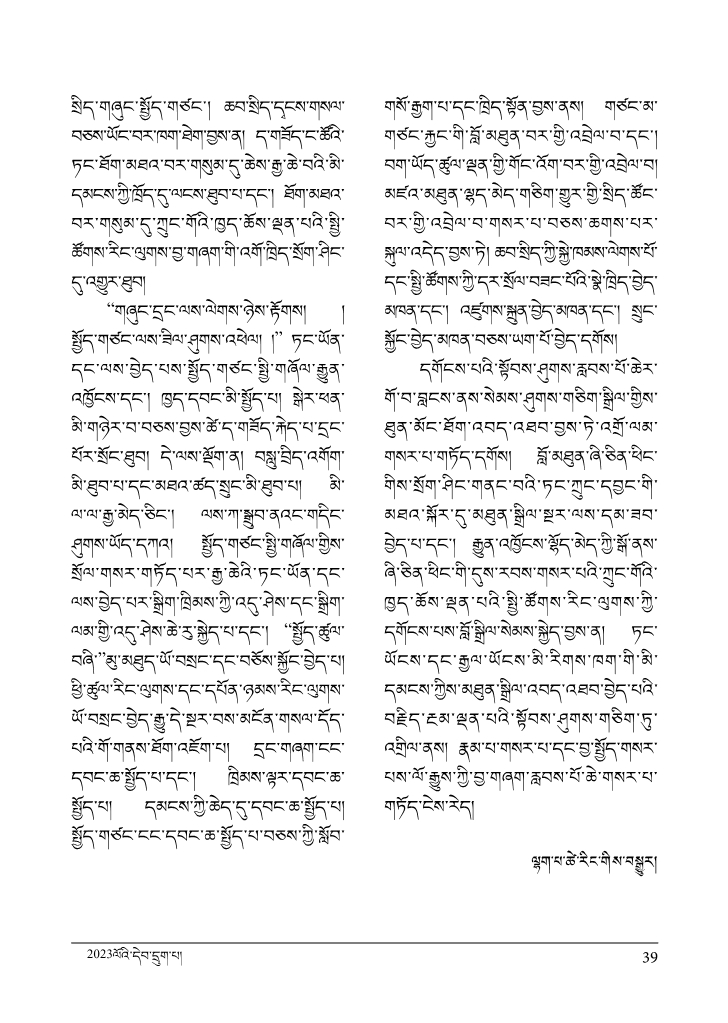 སྲིད་གཞུང་སྤྱོད་གཙང་། ཆབ་སྲིད་དྭངས་གསལ་
བཅས་ཡོང་བར་ཁག་ཐེག་བྱས་ན། ད་གཟོད་ང་ཚོའི་
ཏང་ཐོག་མཐའ་བར་གསུམ་དུ་ཆེས་རྒྱ་ཆེ་བའི་མི་
དམངས་ཀྱི་ཁྲོད་དུ་ལངས་ཐུབ་པ་དང་། ཐོག་མཐའ་
བར་གསུམ་དུ་ཀྲུང་གོའི་ཁྱད་ཆོས་ལྡན་པའི་སྤྱི་
ཚོགས་རིང་ལུགས་བྱ་གཞག་གི་འགོ་ཁྲིད་སྲོག་ཤིང་
དུ་འགྱུར་ཐུབ།
“གཞུང་དྲང་ལས་ལེགས་ཉེས་རྟོགས། །
སྤྱོད་གཙང་ལས་ཟིལ་ཤུགས་འཕེལ། །” ཏང་ཡོན་
དང་ལས་བྱེད་པས་སྤྱོད་གཙང་སྤྱི་གཞོལ་རྒྱུན་
འཁྱོངས་དང་། ཁྱད་དབང་མི་སྤྱོད་པ། སྒེར་ཕན་
མི་གཉེར་བ་བཅས་བྱས་ཚེ་ད་གཟོད་རྐེད་པ་དྲང་
པོར་སྲོང་ཐུབ། དེ་ལས་ལྡོག་ན། བསླུ་བྲིད་འགོག་
མི་ཐུབ་པ་དང་མཐའ་ཚད་སྲུང་མི་ཐུབ་པ། མི་
ལ་ལ་རྒྱ་མེད་ཅིང་། ལས་ཀ་སྒྲུབ་ནའང་གདིང་
ཤུགས་ཡོད་དཀའ། སྤྱོད་གཙང་སྤྱི་གཞོལ་གྱིས་
སྲོལ་གསར་གཏོད་པར་རྒྱ་ཆེའི་ཏང་ཡོན་དང་
ལས་བྱེད་པར་སྒྲིག་ཁྲིམས་ཀྱི་འདུ་ཤེས་དང་སྒྲིག་
ལམ་གྱི་འདུ་ཤེས་ཆེ་རུ་སྐྱེད་པ་དང་། “སྤྱོད་ཚུལ་
བཞི་”མུ་མཐུད་ཡོ་བསྲང་དང་བཅོས་སྐྱོང་བྱེད་པ།
ཕྱི་ཚུལ་རིང་ལུགས་དང་དཔོན་ཉམས་རིང་ལུགས་
ཡོ་བསྲང་བྱེད་རྒྱུ་དེ་སྔར་བས་མངོན་གསལ་དོད་
པའི་གོ་གནས་ཐོག་འཇོག་པ། དྲང་གཞག་ངང་
དབང་ཆ་སྤྱོད་པ་དང་། ཁྲིམས་ལྟར་དབང་ཆ་
སྤྱོད་པ། དམངས་ཀྱི་ཆེད་དུ་དབང་ཆ་སྤྱོད་པ།
སྤྱོད་གཙང་ངང་དབང་ཆ་སྤྱོད་པ་བཅས་ཀྱི་སློབ་
གསོ་རྒྱག་པ་དང་ཁྲིད་སྟོན་བྱས་ནས། གཙང་མ་
གཙང་རྐྱང་གི་བློ་མཐུན་བར་གྱི་འབྲེལ་བ་དང་།
བག་ཡོད་ཚུལ་ལྡན་གྱི་གོང་འོག་བར་གྱི་འབྲེལ་བ།
མཛའ་མཐུན་ལྷད་མེད་གཅིག་གྱུར་གྱི་སྲིད་ཚོང་
བར་གྱི་འབྲེལ་བ་གསར་པ་བཅས་ཆགས་པར་
སྐུལ་འདེད་བྱས་ཏེ། ཆབ་སྲིད་ཀྱི་སྐྱེ་ཁམས་ལེགས་པོ་
དང་སྤྱི་ཚོགས་ཀྱི་དར་སྲོལ་བཟང་པོའི་སྣེ་ཁྲིད་བྱེད་
མཁན་དང་། འཛུགས་སྐྲུན་བྱེད་མཁན་དང་། སྲུང་
སྐྱོང་བྱེད་མཁན་བཅས་ཡག་པོ་བྱེད་དགོས།
དགོངས་པའི་སྟོབས་ཤུགས་རླབས་པོ་ཆེར་
གོ་བ་བླངས་ནས་སེམས་ཤུགས་གཅིག་སྒྲིལ་གྱིས་
ཐུན་མོང་ཐོག་འབད་འཐབ་བྱས་ཏེ་འགྲོ་ལམ་
གསར་པ་གཏོད་དགོས། བློ་མཐུན་ཞི་ཅིན་ཕིང་
གིས་སྲོག་ཤིང་གནང་བའི་ཏང་ཀྲུང་དབྱང་གི་
མཐའ་སྐོར་དུ་མཐུན་སྒྲིལ་སྔར་ལས་དམ་ཟབ་
བྱེད་པ་དང་། རྒྱུན་འཁྱོངས་ལྷོད་མེད་ཀྱི་སྒོ་ནས་
ཞི་ཅིན་ཕིང་གི་དུས་རབས་གསར་པའི་ཀྲུང་གོའི་
ཁྱད་ཆོས་ལྡན་པའི་སྤྱི་ཚོགས་རིང་ལུགས་ཀྱི་
དགོངས་པས་བློ་སྒྲིལ་སེམས་སྐྱེད་བྱས་ན། ཏང་
ཡོངས་དང་རྒྱལ་ཡོངས་མི་རིགས་ཁག་གི་མི་
དམངས་ཀྱིས་མཐུན་སྒྲིལ་འབད་འཐབ་བྱེད་པའི་
བརྗིད་ངམ་ལྡན་པའི་སྟོབས་ཤུགས་གཅིག་ཏུ་
འགྲིལ་ནས། རྣམ་པ་གསར་པ་དང་བྱ་སྤྱོད་གསར་
པས་ལོ་རྒྱུས་ཀྱི་བྱ་གཞག་རླབས་པོ་ཆེ་གསར་པ་
གཏོད་ངེས་རེད།
ལྷག་པ་ཚེ་རིང་གིས་བསྒྱུར།
2023ལོའི་དེབ་དྲུག་པ། 39